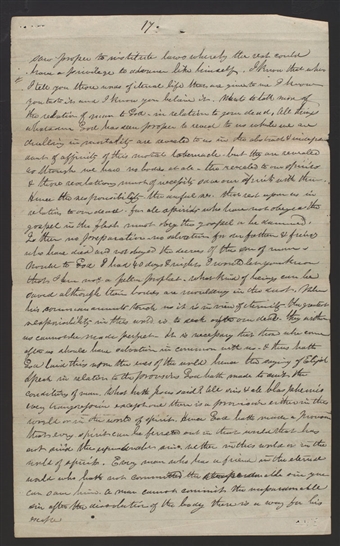 17.
saw proper to institute laws whereby the rest could
have a privilege to advance like himself. I know that when
I tell you these words of eternal life that are given to me I know
you taste it and I know you believe it. Want to talk more of
the relation of man to God. in relation to your dead, All things
whatsoever God has seen proper to reveal to us while we are
dwelling in mortality are revealed to us in the abstract &
of affinity of this mortal tabernacle but they are revealed
as though we have no bodies at all. the revealed to our spirits
& those revelations must of necessity save our spirits with them
Hence the responsibility the awful resp. that rest upon us in
relation to our dead. for all spirits who have not obeyed the
gospel in the flesh must obey the gospel or be damned.
Is there no preparation no salvation for our fathers & friends
who have died and not obeyed the decrees of the son of man.
to God I had 40 days & nights I would let you know
that I am not a fallen prophet. what kind of beings can be
saved although their bodies are mouldering in the dust. When
his commandments teach us it is in view of eternity. The greatest
responsibility in this world is to seek after our dead. They without
us cannot be made perfect. it is necessary that those who come
after us should have salvation in common with us. & thus hath
God laid this upon the eves of the world hence the saying of Elijah
Speak in relation to the provisions God hath made to suit the
conditions of man. What hath Jesus said. All sins & all blasphemies
every transgression except one there is a provision either in this
world or in the world of spirits. Hence God hath made a provision
that every spirit can be ferreted out in that world that has
not sin'd the unpardonable sin. neither in this world or in the
world of spirits. Every man who has a friend in the eternal
world who hath not committed the unpardonable sin you
can save him. A man cannot commit the unpardonable
sin after the dissolution of the body there is a way for his
escape